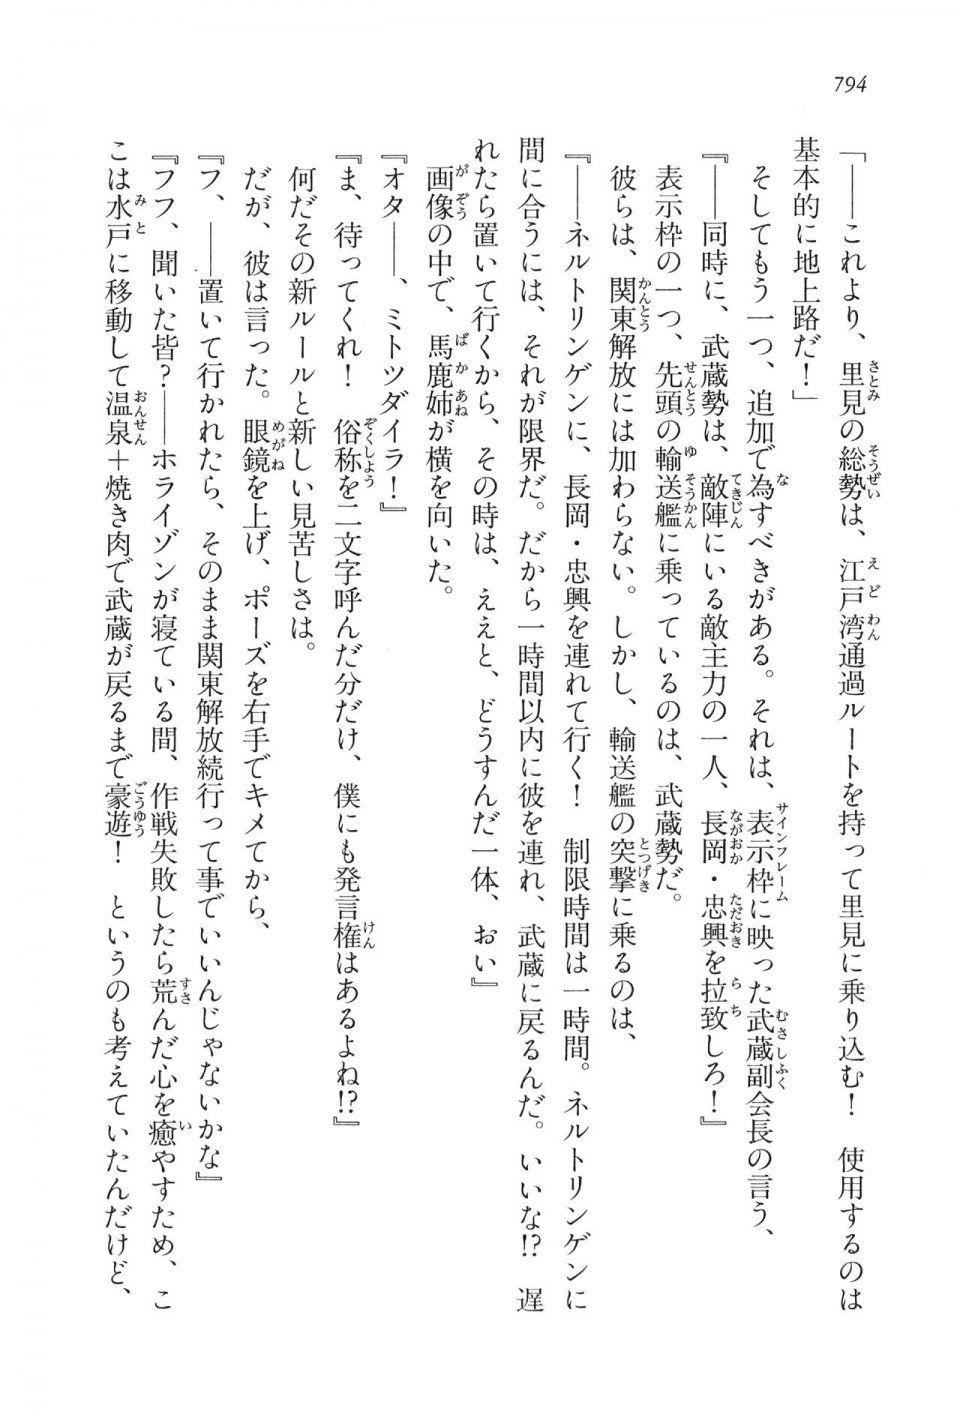 794
「――これより、里見の総勢は、江戸湾通過ルートを持って里見に乗り込む！　使用するのは
基本的に地上路だ！」
そしてもう一つ、追加で為すべきがある。それは、表示枠に映った武蔵副会長の言う、
『――同時に、武蔵勢は、敵陣にいる敵主力の一人、長岡・忠興を拉致しろ！』
表示枠の一つ、先頭の輸送艦に乗っているのは、武蔵勢だ。
彼らは、関東解放には加わらない。しかし、輸送艦の突撃に乗るのは、
『――ネルトリンゲンに、長岡・忠興を連れて行く！　制限時間は一時間。ネルトリンゲンに
間に合うには、それが限界だ。だから一時間以内に彼を連れ、武蔵に戻るんだ。いいな!?　遅
れたら置いて行くから、その時は、ええと、どうすんだ一体、おい』
画像の中で、馬鹿姉が横を向いた。
『オタ――、ミトツダイラ！』
『ま、待ってくれ！　俗称を二文字呼んだ分だけ、僕にも発言権はあるよね!?』
何だその新ルールと新しい見苦しさは。
だが、彼は言った。眼鏡を上げ、ポーズを右手でキメてから、
『フ、――置いて行かれたら、そのまま関東解放続行って事でいいんじゃないかな』
『フフ、聞いた皆？――ホライゾンが寝ている間、作戦失敗したら荒んだ心を癒やすため、こ
こは水戸に移動して温泉＋焼き肉で武蔵が戻るまで豪遊！　というのも考えていたんだけど、